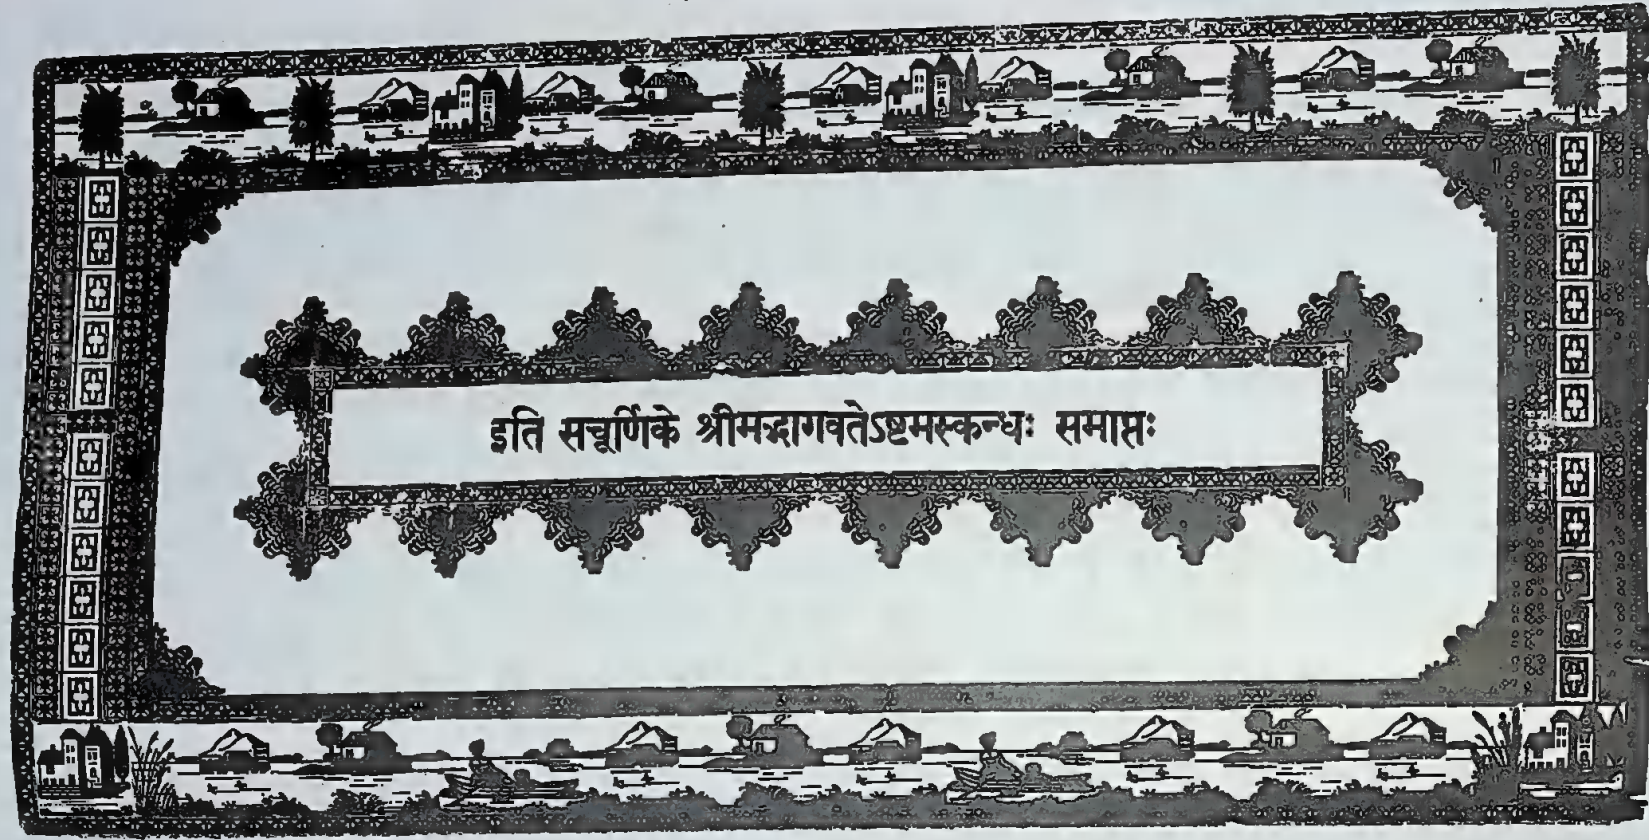 इति सचूर्णिके श्रीमद्भागवतेऽष्टमस्कन्धः समाप्तः